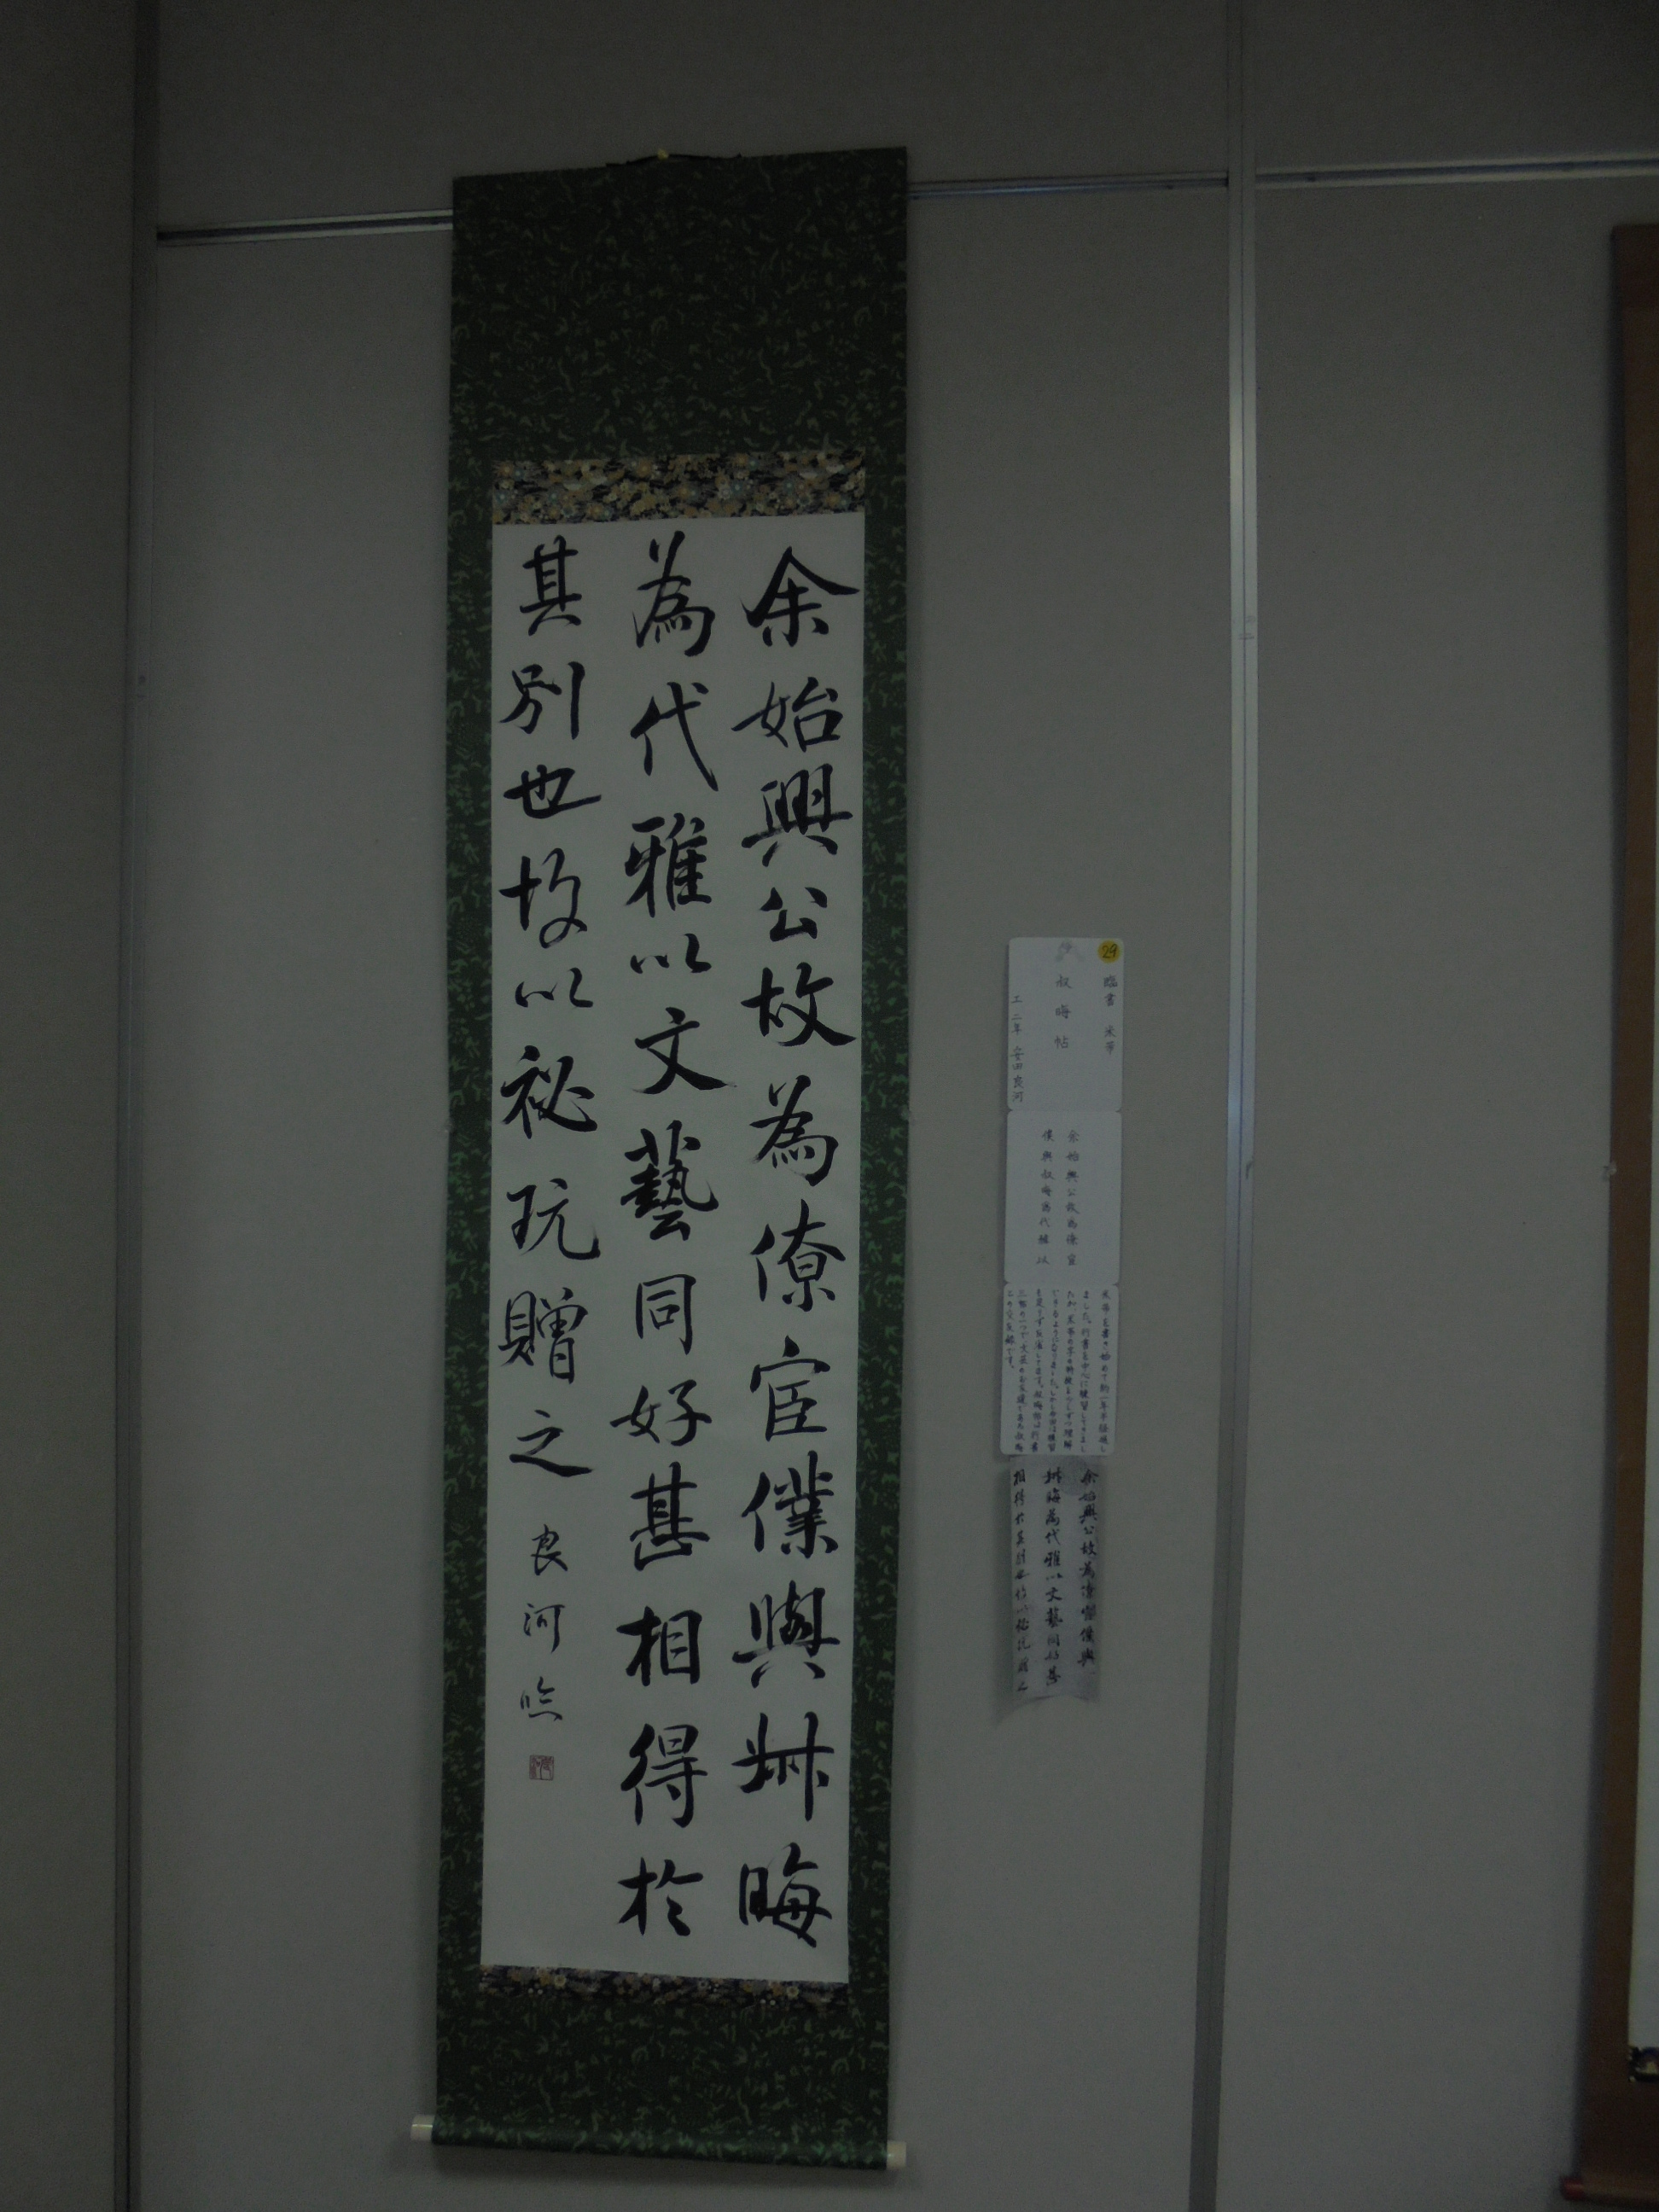 余始興公故為僚宦僕與叔晦
為代雅以文藝同好甚相得於
其別也故以祕玩贈之 良河臨
29
臨書 米芾
叔晦帖
工二年 安田良河
余始興公故為僚宦
僕與叔晦為代雅以
余始興公故為僚宦僕與
叔晦為代雅以文藝同好甚
相得於其別也故以祕玩贈之